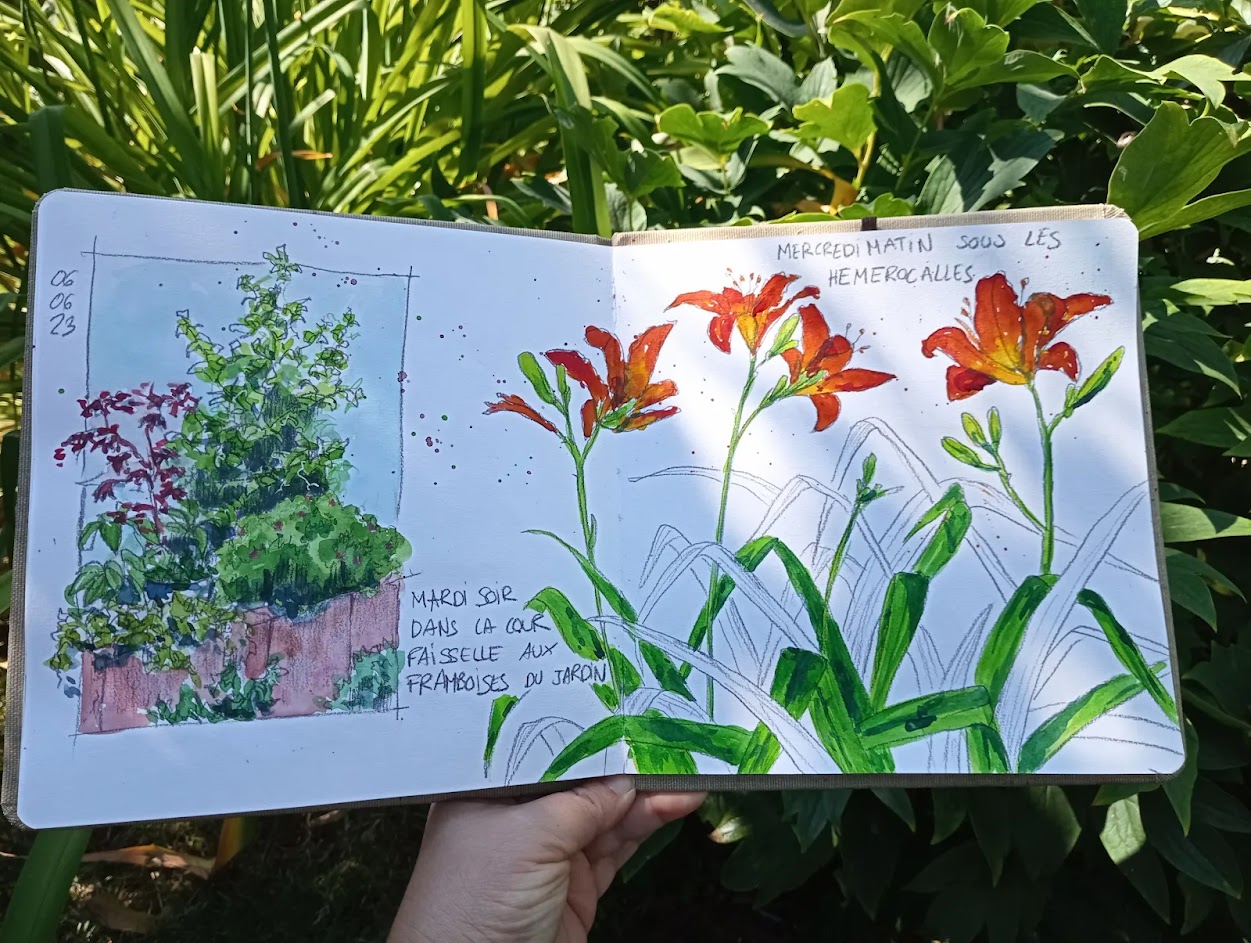 06
06
23
MARDI SOIR
DANS LA COUR
FAISSELLE AUX
FRAMBOISES DU JARDIN
MERCREDI MATIN SOUS LES
HEMEROCALLES